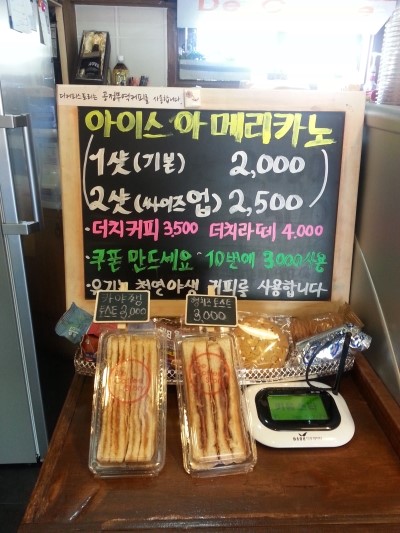 De C
더치스토리는 공정무역커피를 사용합니다.
아이스 아메리카노
1샷(기본) 2,000
2샷(싸이즈업) 2,500
·더치커피 3500 더치라떼 4.000
·쿠폰 만드세요 10번에 3000사용
유기농 천연야생 커피를 사용합니다
카야잼
토스트 3,000
토스트
3,000